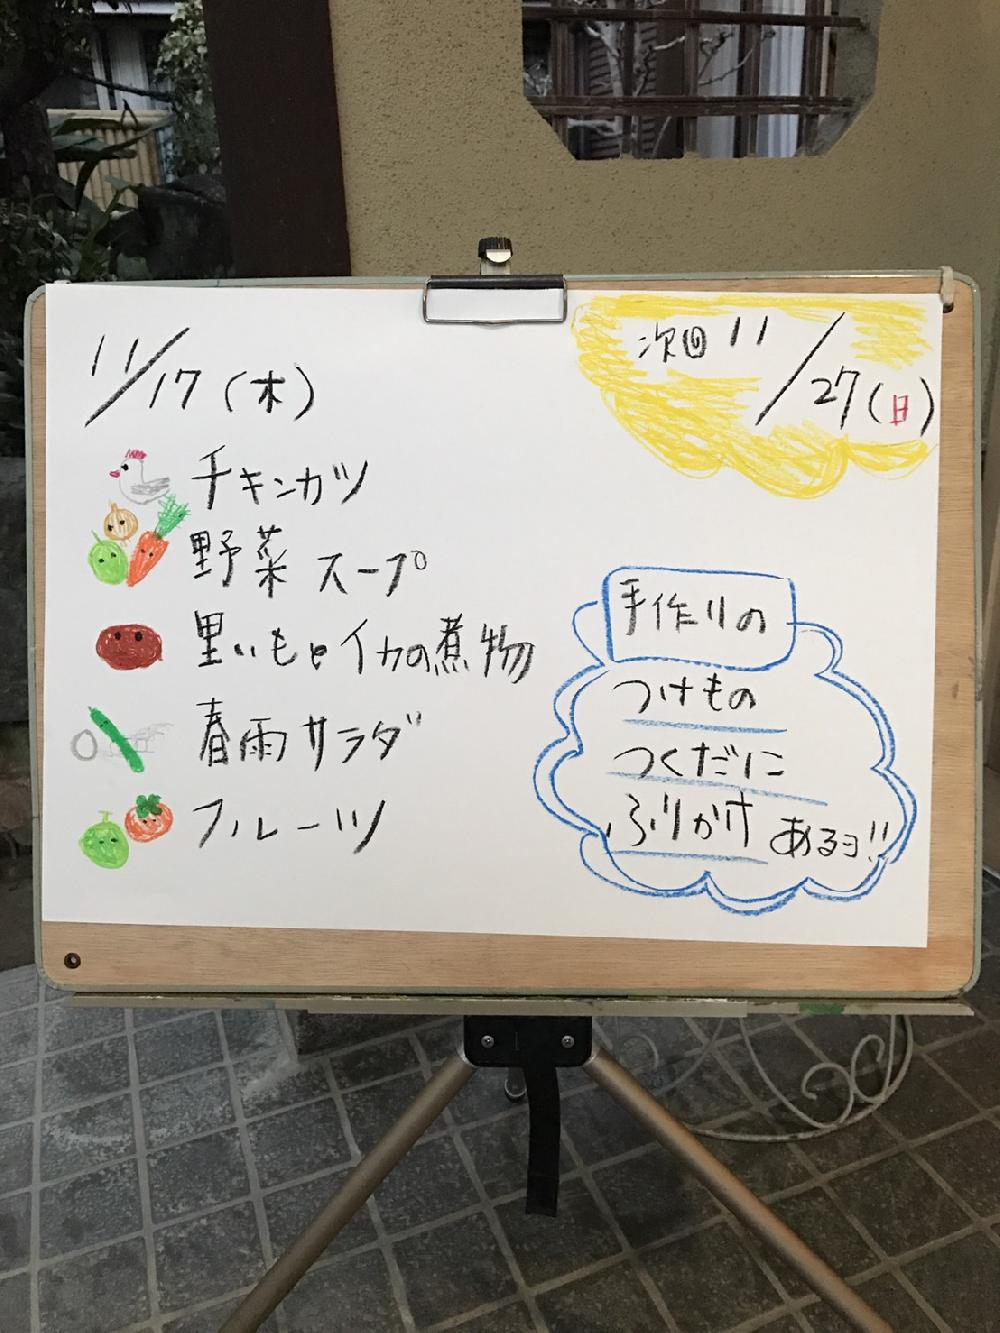 11/17(木)
チキンカツ
野菜スープ
里いもとイカの煮物
春雨サラダ
フルーツ
次回 11/27(日)
手作りの
つけもの
つくだに
ふりかけ あるヨ!!